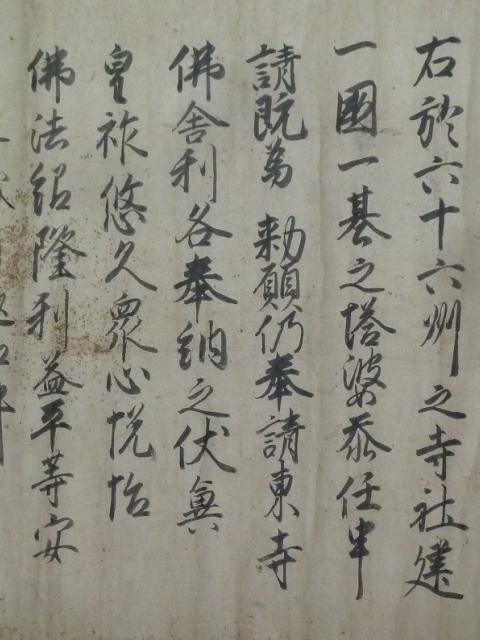 右於六十六州之寺社建
一國一基之塔婆忝任申
請既為 勅願仍奉請東寺
佛舎利各奉納之伏冀
皇祚悠久衆心悦怡
佛法紹隆利益平等安